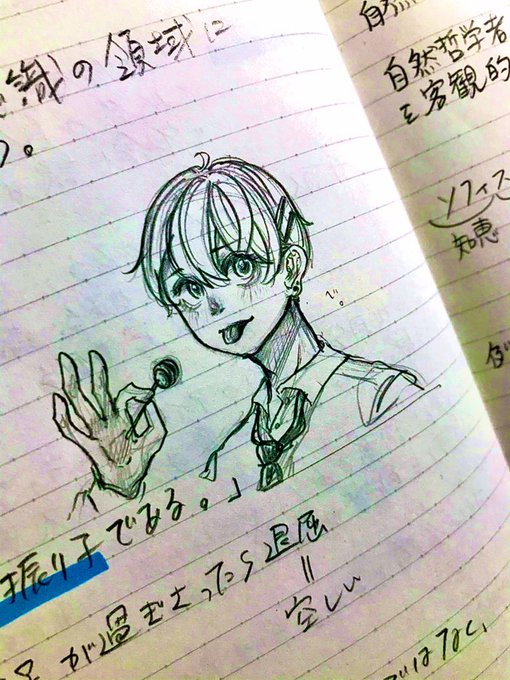 識の領域に
う。
振り子である。」
が過ぎさったら退屈
＝
空しい
ではなく、
自然
自然哲学者
を客観的
ソフィス
知恵